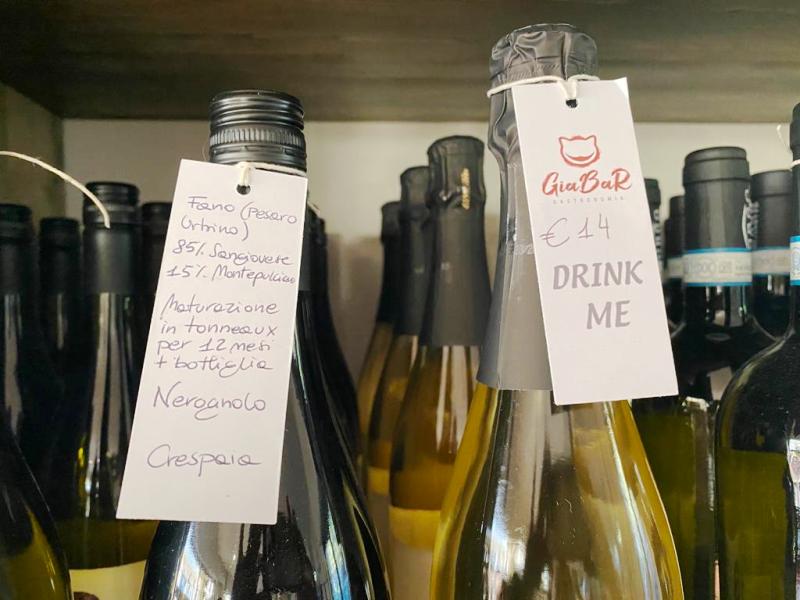 Fano (Pesaro
Urbino)
85% Sangiovese
15% Montepulciano
Maturazione
in tonneaux
per 12 mesi
+ bottiglia
Nerognolo
Crespaia
GiaBaR
GASTRONOMIA
€ 14
DRINK
ME